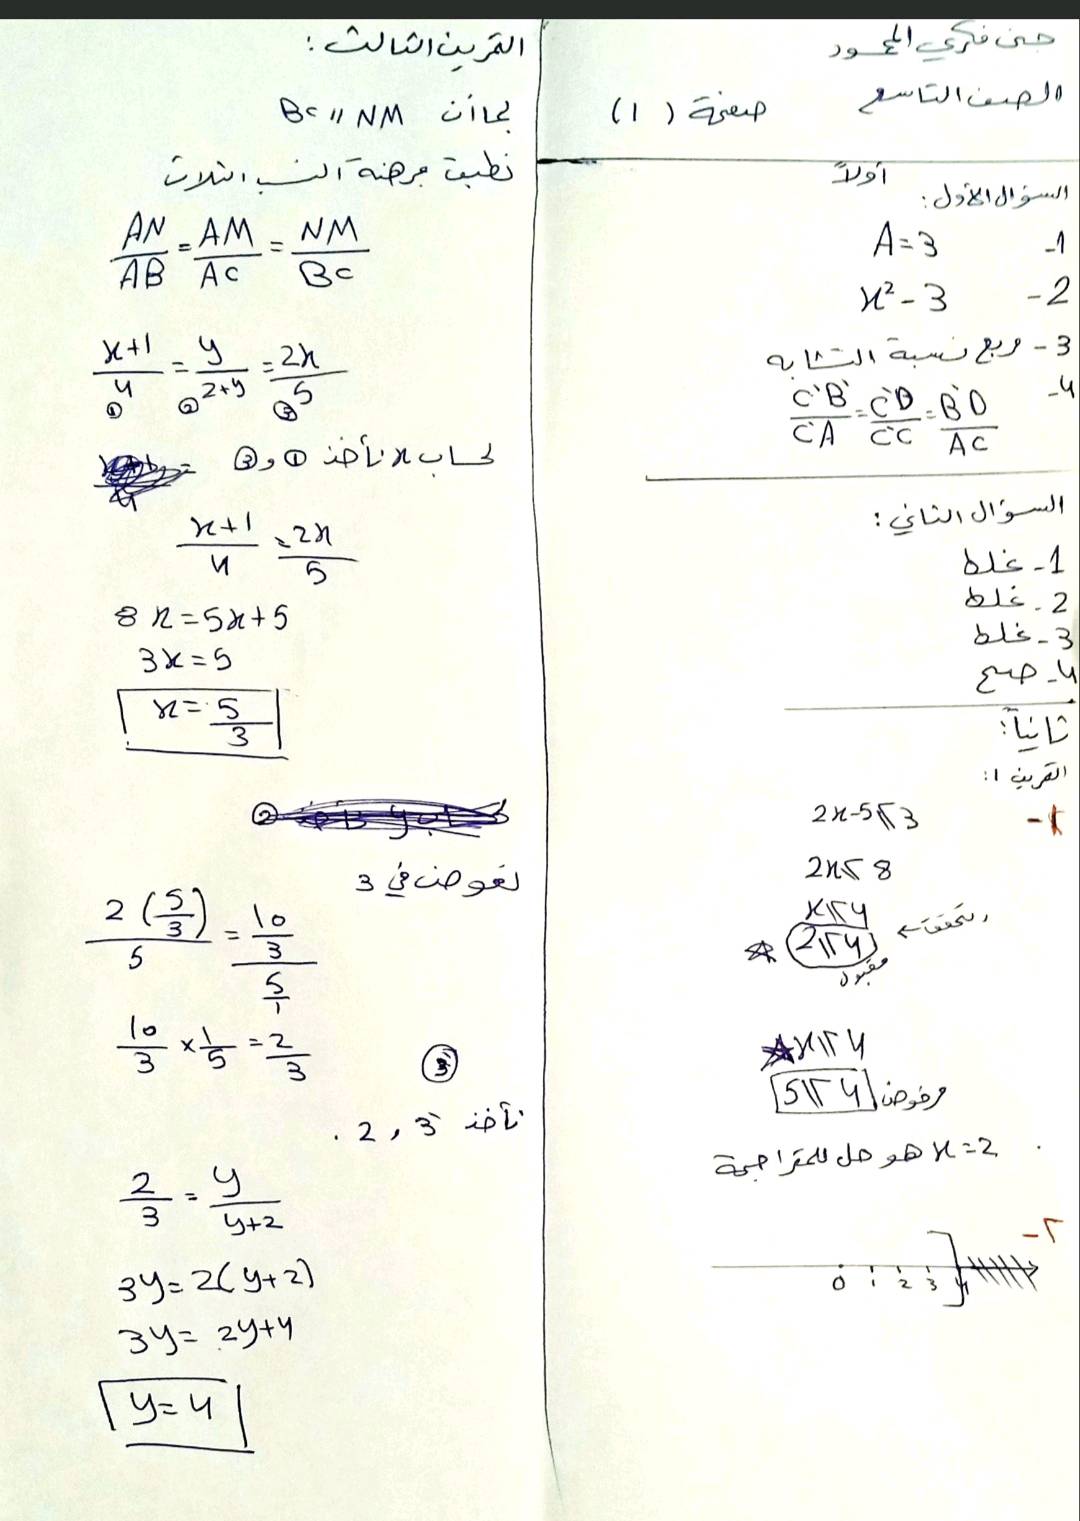 جنى فكري المحمود
الصف التاسع
صفحة (1)
أولاً
السؤال الأول:
1- A=3
2- x²-3
3- مربع نسبة التشابه
4- C'B'/C'A = C'D/C'C = B'D/AC
السؤال الثاني:
1- غلط
2- غلط
3- غلط
4- صح
ثانياً:
التمرين 1:
1- 2x-5≤3
2x≤8
x≤4
نتحقق ← 2≤4
مقبول
x≤4
5≤4 مرفوض
x=2 هو حل للمتراجحة
٢-
0 1 2 3 4
التمرين الثالث:
بما أن BC // NM
نطبق مبرهنة النسب الثلاث
AN/AB = AM/AC = NM/BC
x+1/4 = y/2+y = 2x/5
① ② ③
لحساب x نأخذ ① و ③
x+1/4 = 2x/5
8x=5x+5
3x=5
x=5/3
②
نعوض في 3
2(5/3)/5 = 10/3 / 5/1
10/3 × 1/5 = 2/3
③
نأخذ 3 , 2 .
2/3 = y/y+2
3y=2(y+2)
3y=2y+4
y=4